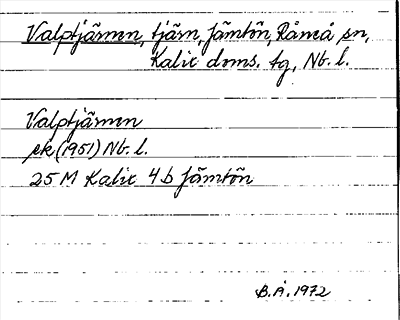 Valptjärnen, tjärn, Jämtön, Råneå sn,
Kalix doms. tg, Nb. l.
Valptjärnen
ek (1951) Nb. l.
25 M Kalix 4b Jämtön
B.Å. 1972